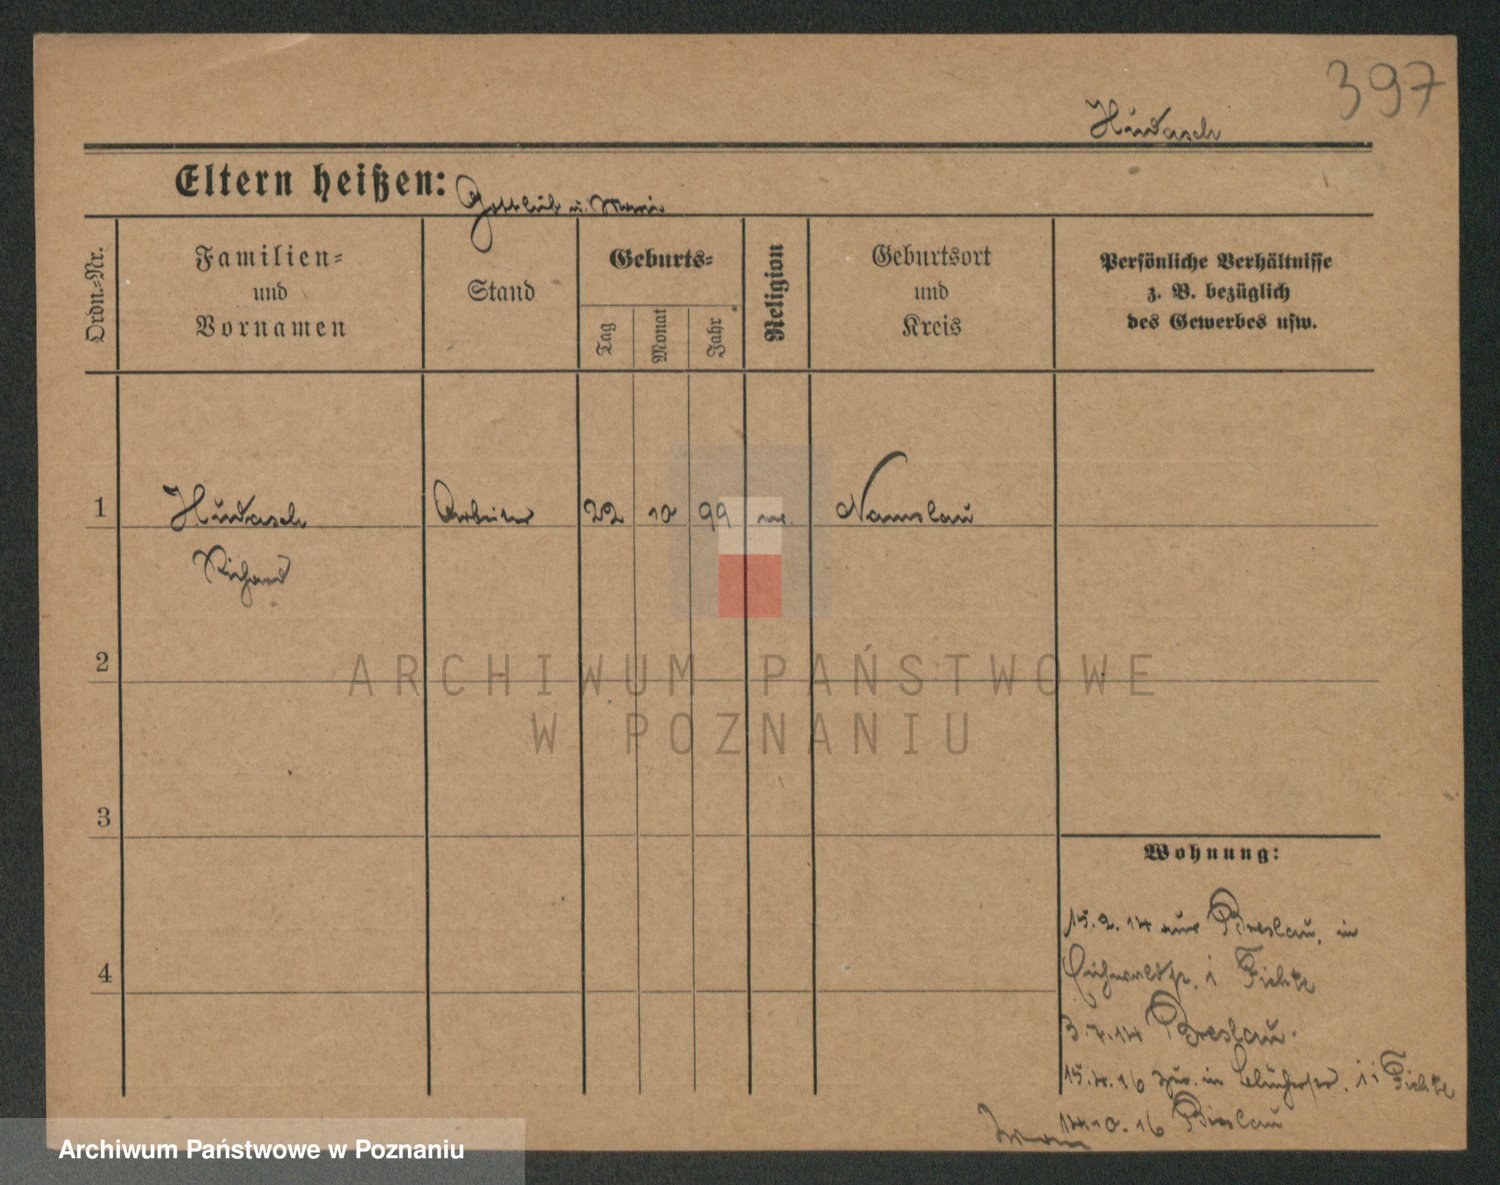 397
Hudasch
Eltern heißen: Gottlieb u. Marie
Ordn.-Nr.
Familien-
und
Vornamen
Stand
Geburts-
Tag
Monat
Jahr
Religion
Geburtsort
und
Kreis
Persönliche Verhältnisse
z. B. bezüglich
des Gewerbes usw.
1 Hudasch Arbeiter 22 10 99 Namslau
Richard
2
3
4
ARCHIWUM PAŃSTWOWE
W POZNANIU
Wohnung:
15.2.14 aus Breslau, in
Eichwaldstr. Fichte
3.7.14 Breslau.
15.4.16 zur. in Fichte
14.10.16 Breslau
Archiwum Państwowe w Poznaniu